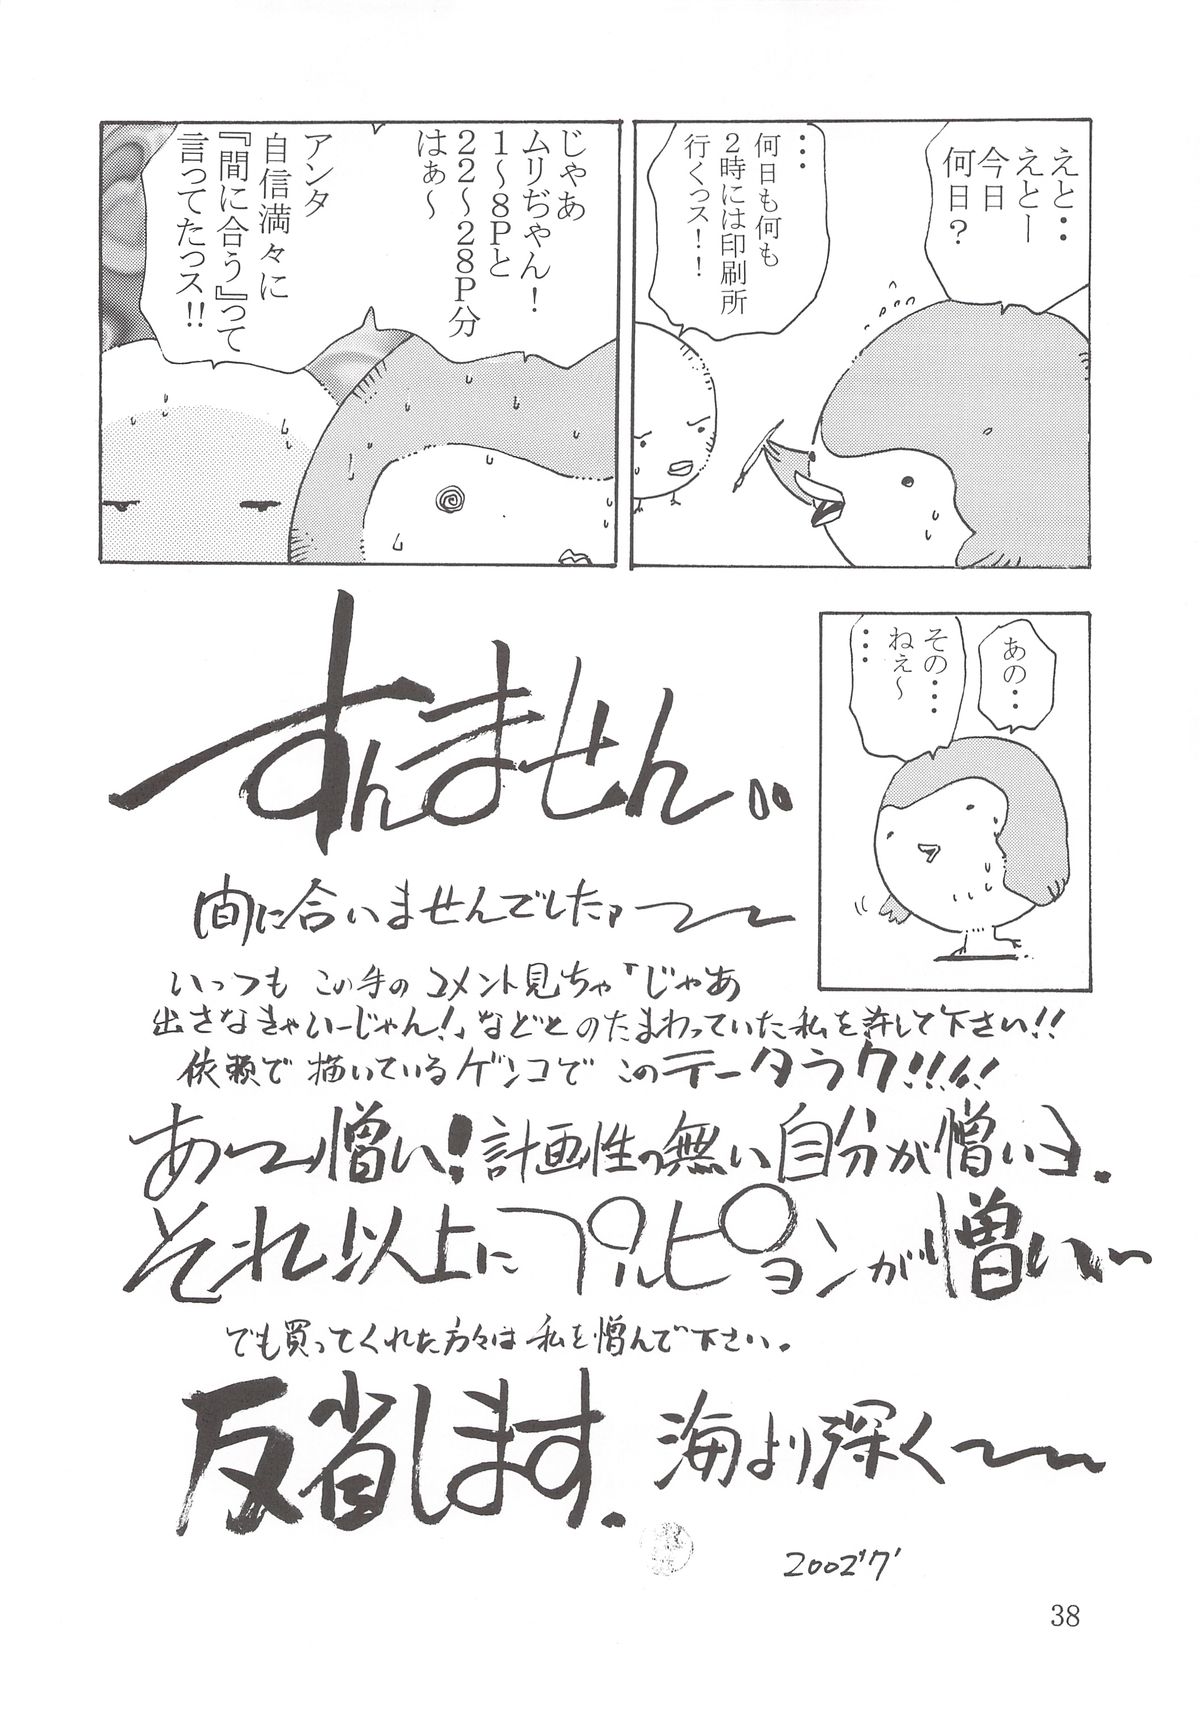 えと・・
えとー
今日
何日？
・・・
何日も何も
２時には印刷所
行くっス！！
じゃあ
ムリぢゃん！
１～８Ｐと
２２～２８Ｐ分
はぁ～
アンタ
自信満々に
『間に合う』って
言ってたっス!!
あの・・
その・・・・
ねぇ～
・・・
すんません。。
間に合いませんでした
いっつも この手のコメント見ちゃ「じゃあ
出さなきゃいーじゃん！」などとのたまわっていた私を許して下さい!!
依頼で描いているゲンコでこのテータラク!!!!
あー憎い！計画性の無い自分が憎いよ.
それ以上にプルピヨンが憎い～
でも買ってくれた方々は私を憎んで下さい。
反省します. 海より深く～
2002'7'
38